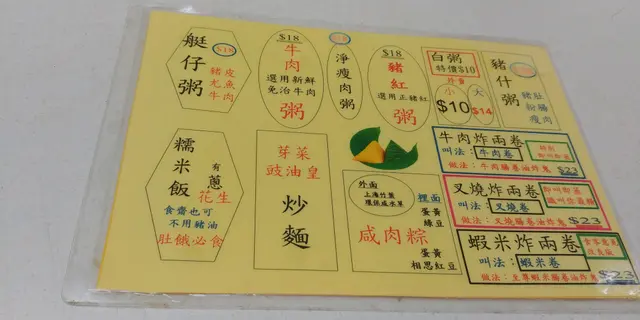 艇仔粥
$18
豬皮
魷魚
牛肉
$18
牛肉
選用新鮮
免治牛肉
粥
$18
淨瘦肉粥
$18
豬紅
選用正豬紅
粥
白粥
特價$10
外賣
小
$10
大
$14
豬什粥
豬肚
粉腸
瘦肉
牛肉炸兩卷
叫法:牛肉卷
做法:牛肉腸卷油炸鬼
$23
叉燒炸兩卷
叫法:叉燒卷
做法:叉燒腸卷油炸鬼
$23
蝦米炸兩卷
叫法:蝦米卷
$23
糯米飯
有蔥
花生
食齋也可
不用豬油
肚餓必食
芽菜
豉油皇
炒麵
外面
上海竹葉
環保咸水草
咸肉粽
裡面
蛋黃
綠豆
蛋黃
相思紅豆